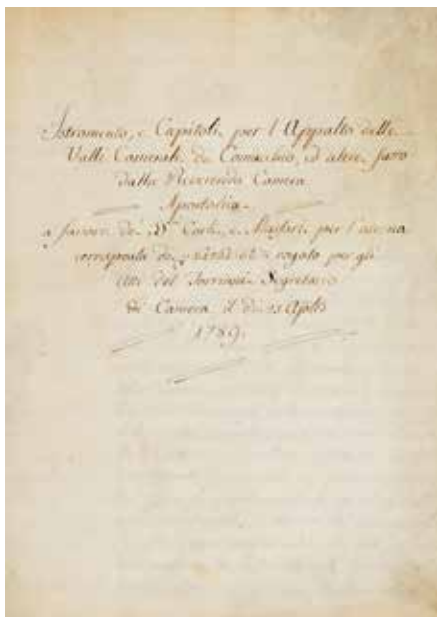 Istromento, e Capitoli per l'Appalto delle
Valli Camerali di Comacchio, ed altro fatto
dalla Reverenda Camera
Apostolica
a favore de' Carli, e per l'annua
corrisposta di rogato per gli
Atti del Torriani Segretario
di Camera il dì 23 Agosto
1789.